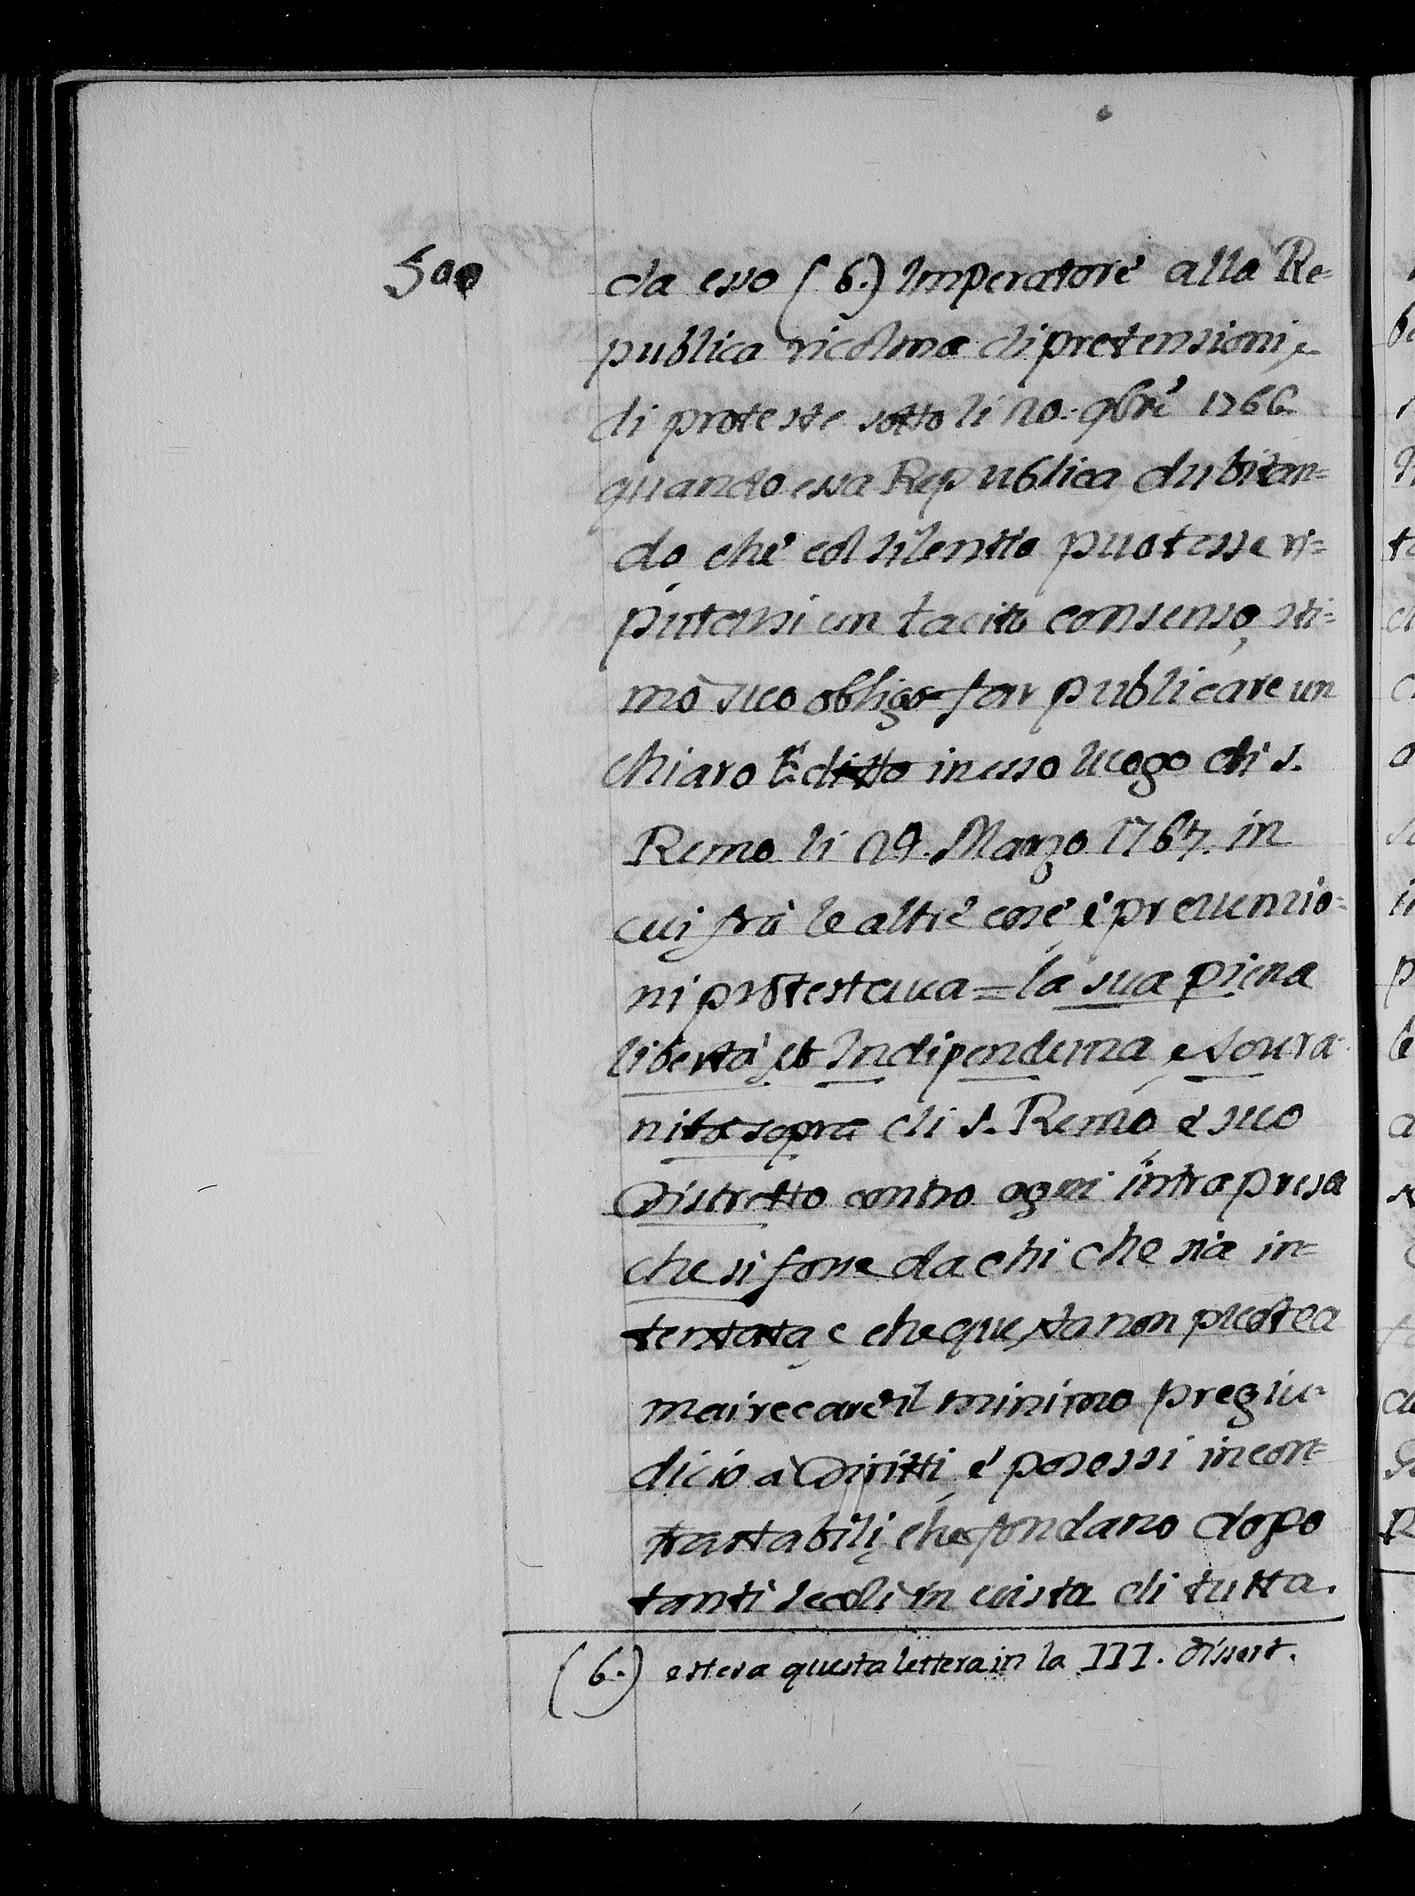 500
da esso (6.) Imperatore alla Re=
publica ricolma di pretensioni, e
di proteste sotto li 20. 9bre 1766
quando essa Republica dubitan=
do, che col silentio puotesse ri=
putarsi un tacito consenso, sti=
mò suo obligo far publicare un
chiaro Editto in esso luogo di S.
Remo li 29. Marzo 1767. in
cui frà le altre cose, e preuenzio=
ni protestaua = la sua piena
libertà, et Indipendenza, e soura
nità sopra di S. Remo, e suo
Distretto contro ogni intrapresa
che si fosse da chi che sia in=
tentata, e che questa non puotea
mai recare il minimo pregiu=
dicio a Diritti, e posessi incon=
trastabili, che fondano dopo
tanti secoli in uista di tutta.
(6.) estesa questa lettera in la III. Dissert.